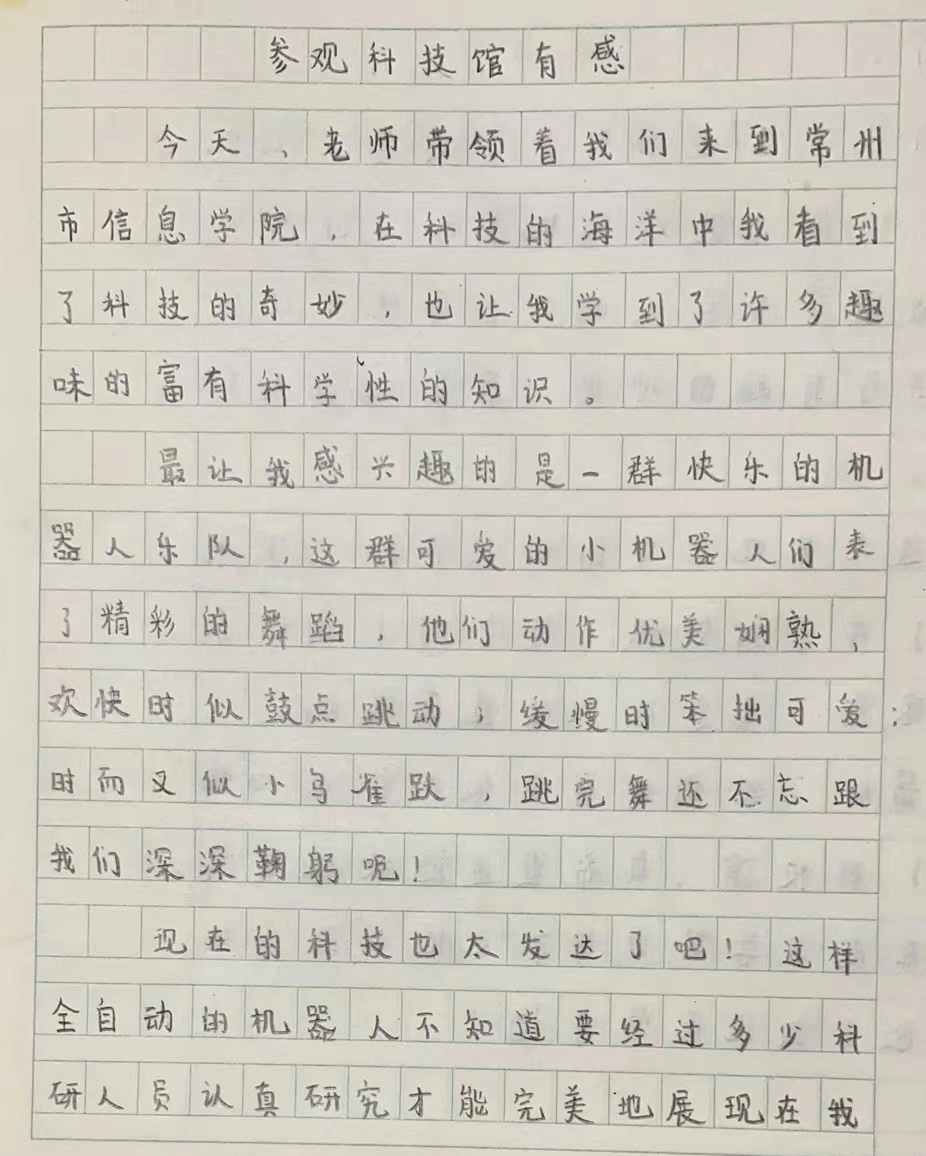 参观科技馆有感
今天,老师带领着我们来到常州
市信息学院,在科技的海洋中我看到
了科技的奇妙,也让我学到了许多趣
味的富有科学性的知识。
最让我感兴趣的是一群快乐的机
器人乐队,这群可爱的小机器人们表
了精彩的舞蹈,他们动作优美娴熟,
欢快时似鼓点跳动;缓慢时笨拙可爱;
时而又似小鸟雀跃,跳完舞还不忘跟
我们深深鞠躬呢!
现在的科技也太发达了吧!这样
全自动的机器人不知道要经过多少科
研人员认真研究才能完美地展现在我